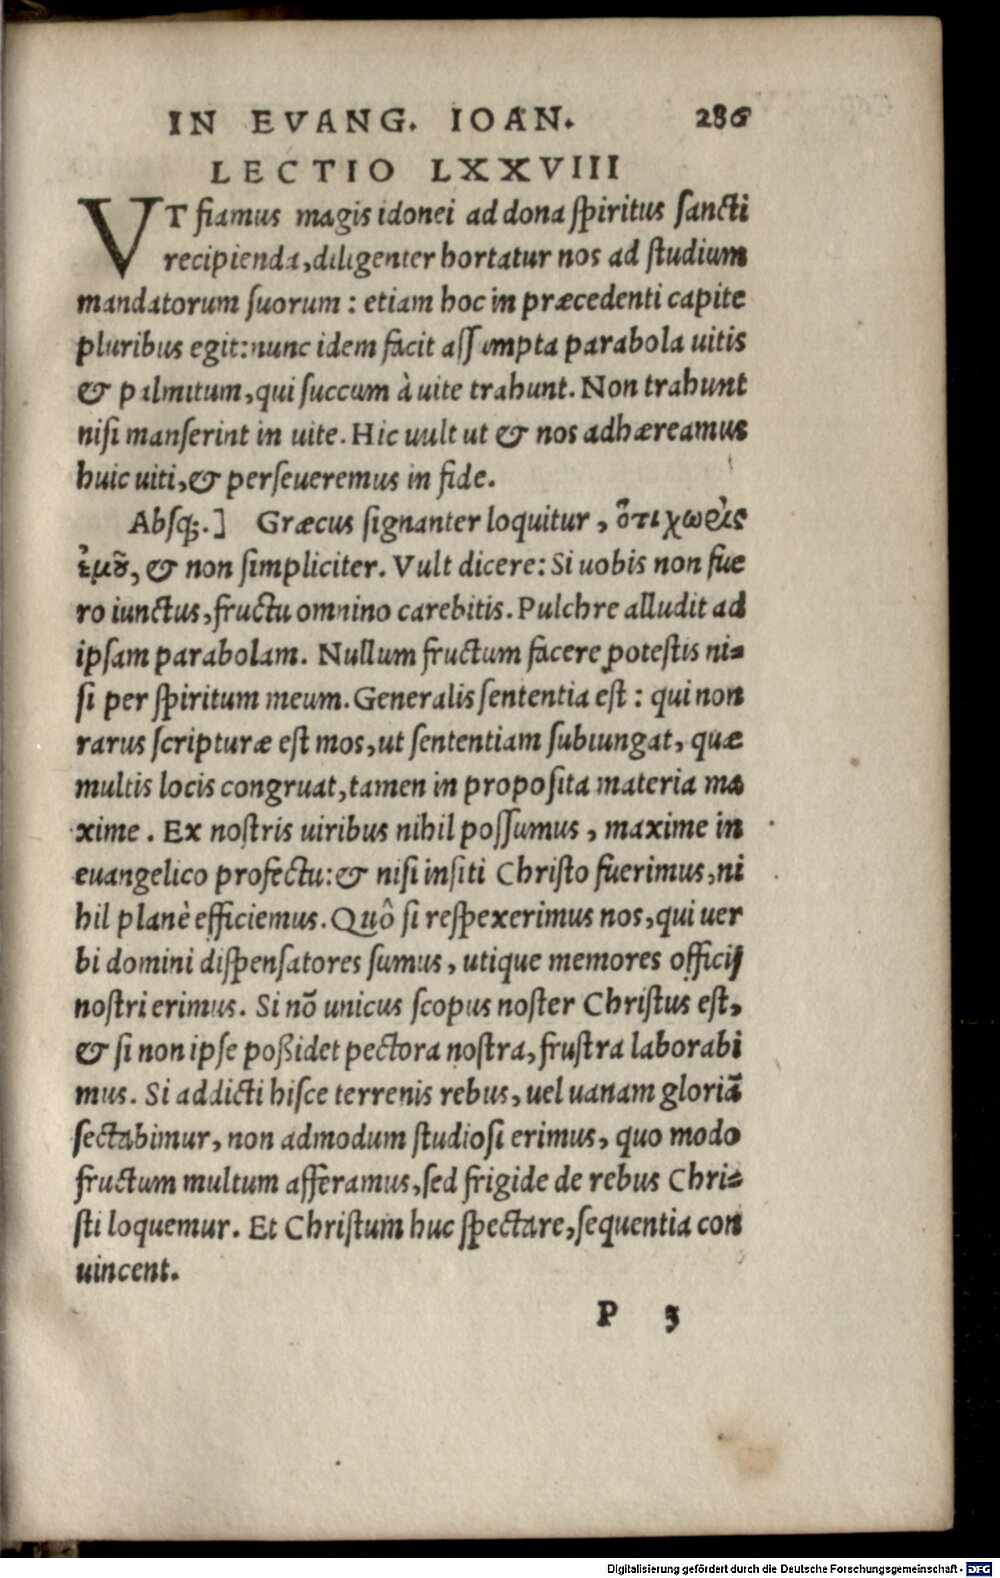 IN EVANG. IOAN. 286
LECTIO LXXVIII
VT fiamus magis idonei ad dona spiritus sancti
recipienda, diligenter hortatur nos ad studium
mandatorum suorum: etiam hoc in præcedenti capite
pluribus egit: nunc idem facit assumpta parabola uitis
& palmitum, qui succum à uite trahunt. Non trahunt
nisi manserint in uite. Hic uult ut & nos adhæreamus
huic uiti, & perseueremus in fide.
Absq;.] Græcus signanter loquitur, ὅτι χωρὶς
ἐμοῦ, & non simpliciter. Vult dicere: Si uobis non fue
ro iunctus, fructu omnino carebitis. Pulchre alludit ad
ipsam parabolam. Nullum fructum facere potestis ni-
si per spiritum meum. Generalis sententia est: qui non
rarus scripturæ est mos, ut sententiam subiungat, quæ
multis locis congruat, tamen in proposita materia ma
xime. Ex nostris uiribus nihil possumus, maxime in
euangelico profectu: & nisi insiti Christo fuerimus, ni
hil planè efficiemus. Quô si respexerimus nos, qui uer
bi domini dispensatores sumus, utique memores officij
nostri erimus. Si nõ unicus scopus noster Christus est,
& si non ipse poßidet pectora nostra, frustra laborabi
mus. Si addicti hisce terrenis rebus, uel uanam gloriã
sectabimur, non admodum studiosi erimus, quo modo
fructum multum afferamus, sed frigide de rebus Chri-
sti loquemur. Et Christum huc spectare, sequentia con
uincent.
P 3
Digitalisierung gefördert durch die Deutsche Forschungsgemeinschaft - DFG